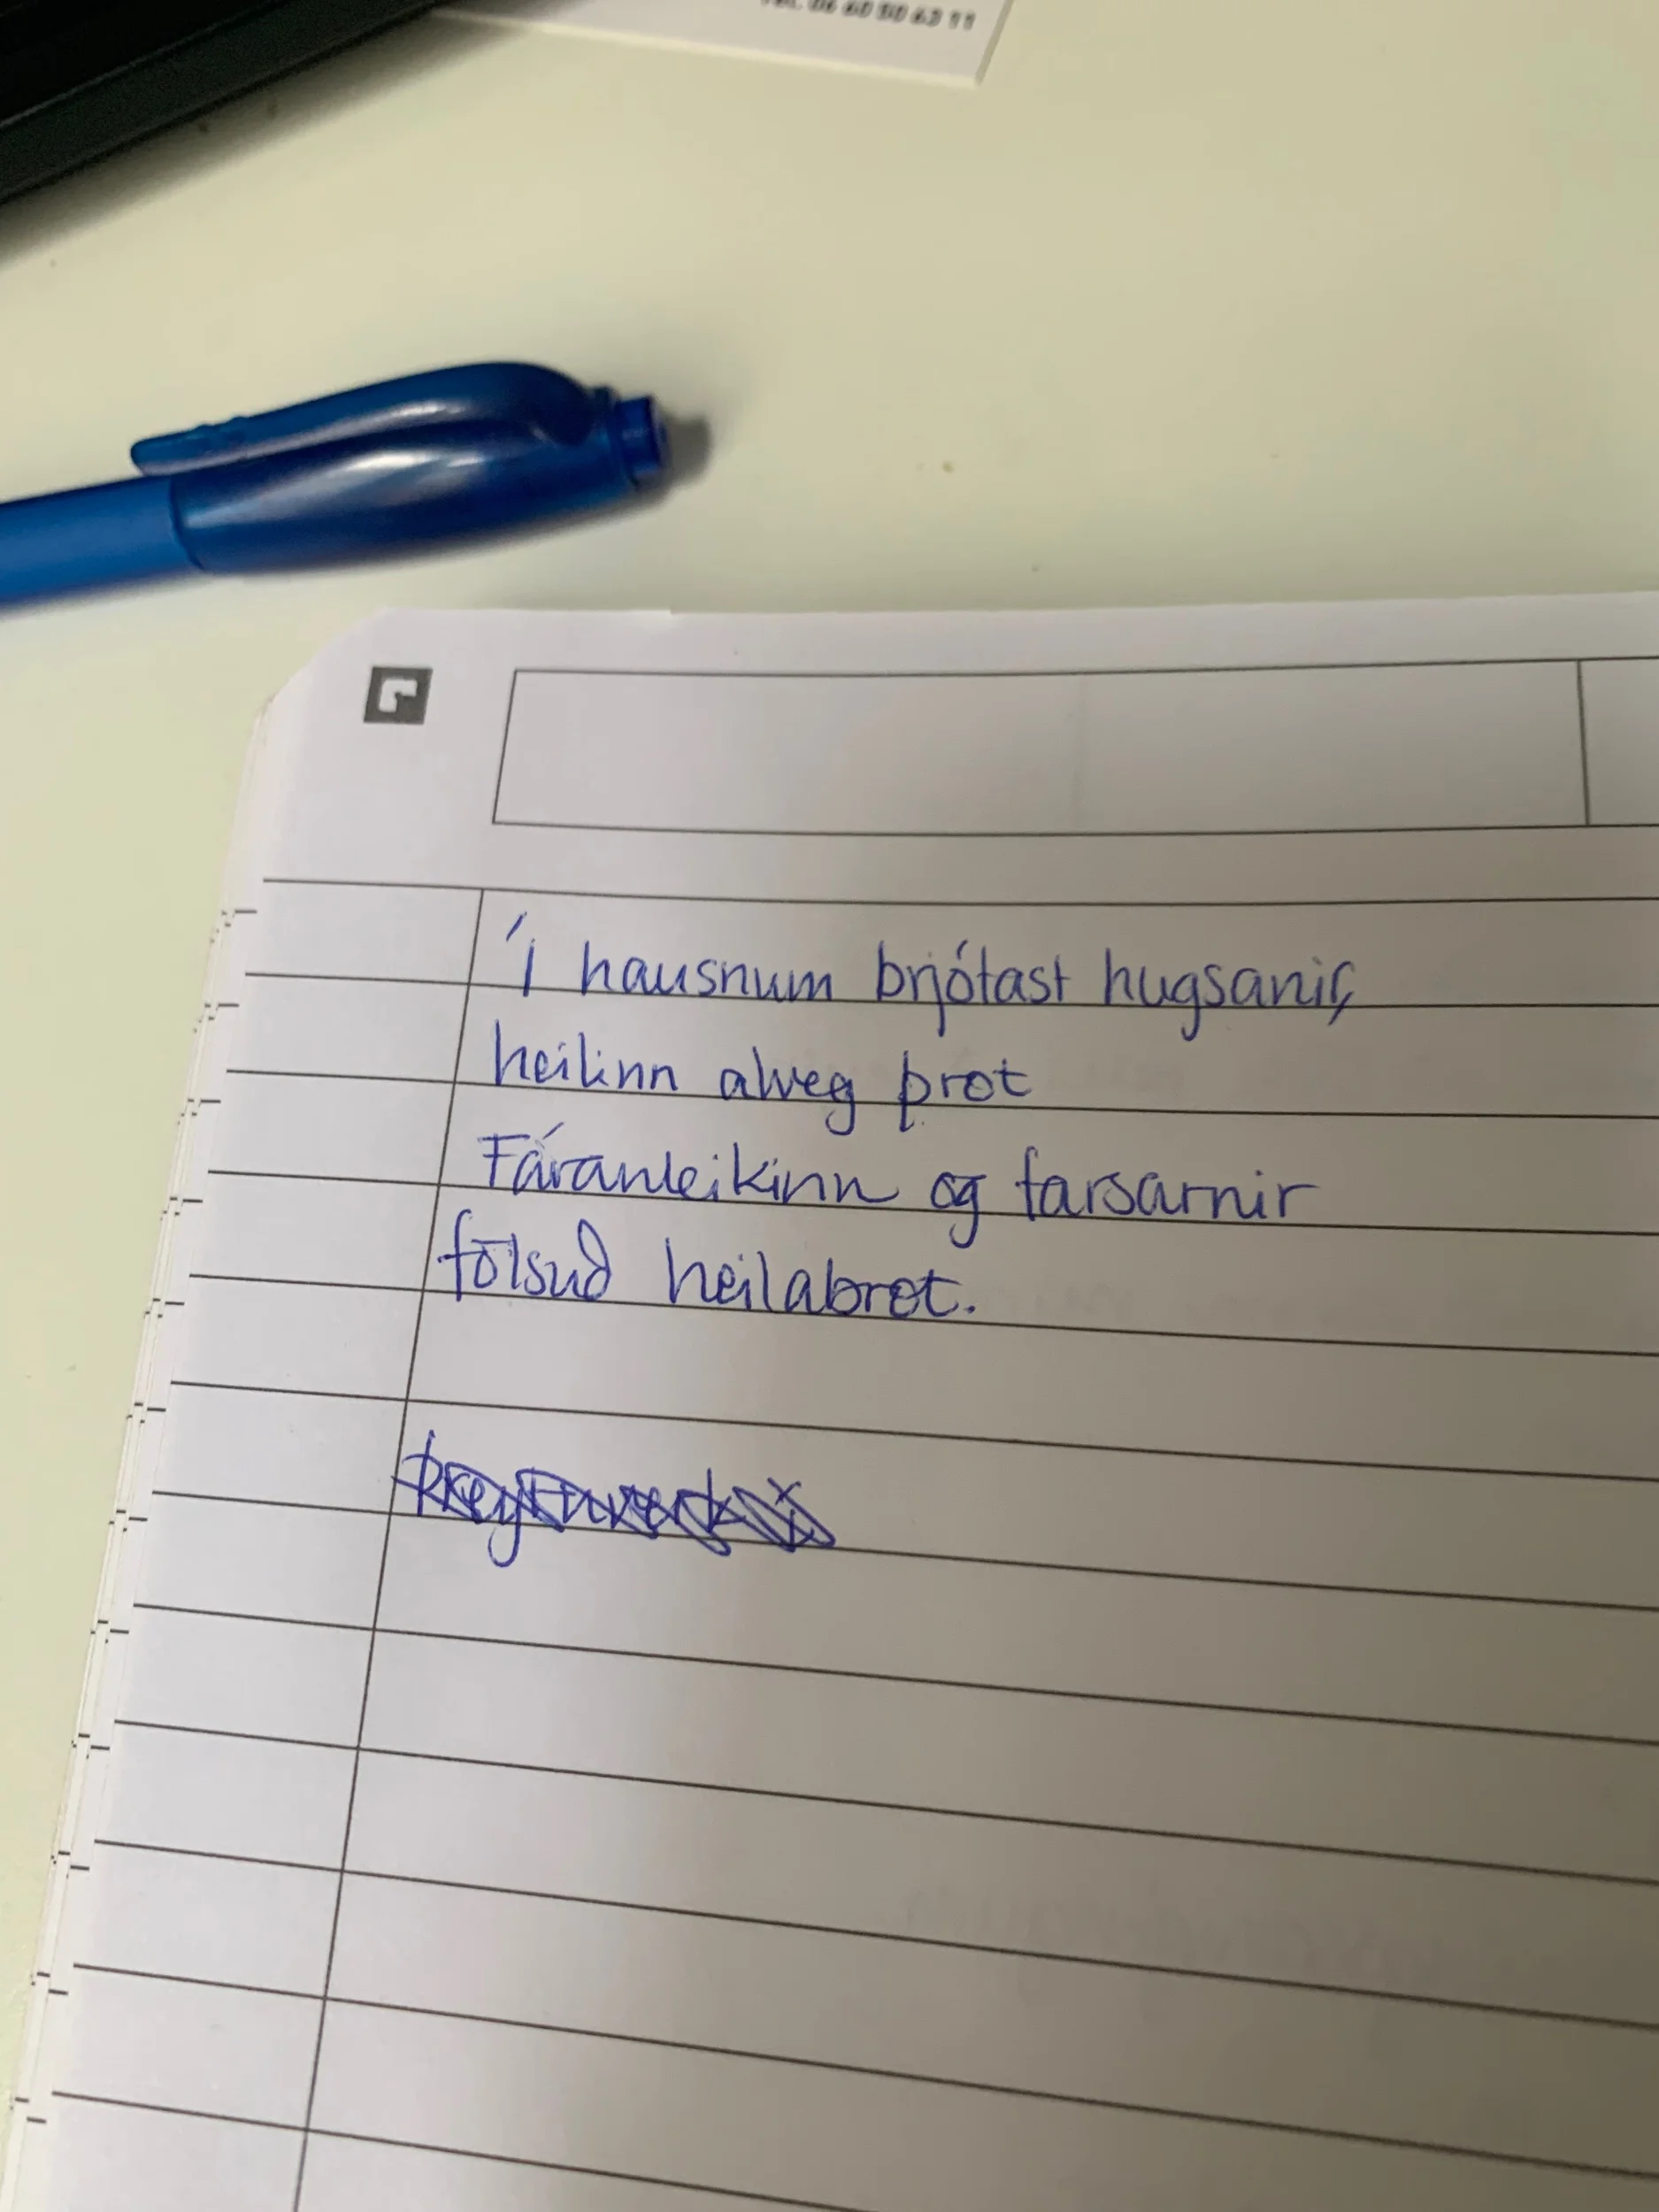 TEL 06 60 50 63 11
Í hausnum brjótast hugsanir,
heilinn alveg þrot
Fáranleikinn og farsarnir
fölsuð heilabrot.